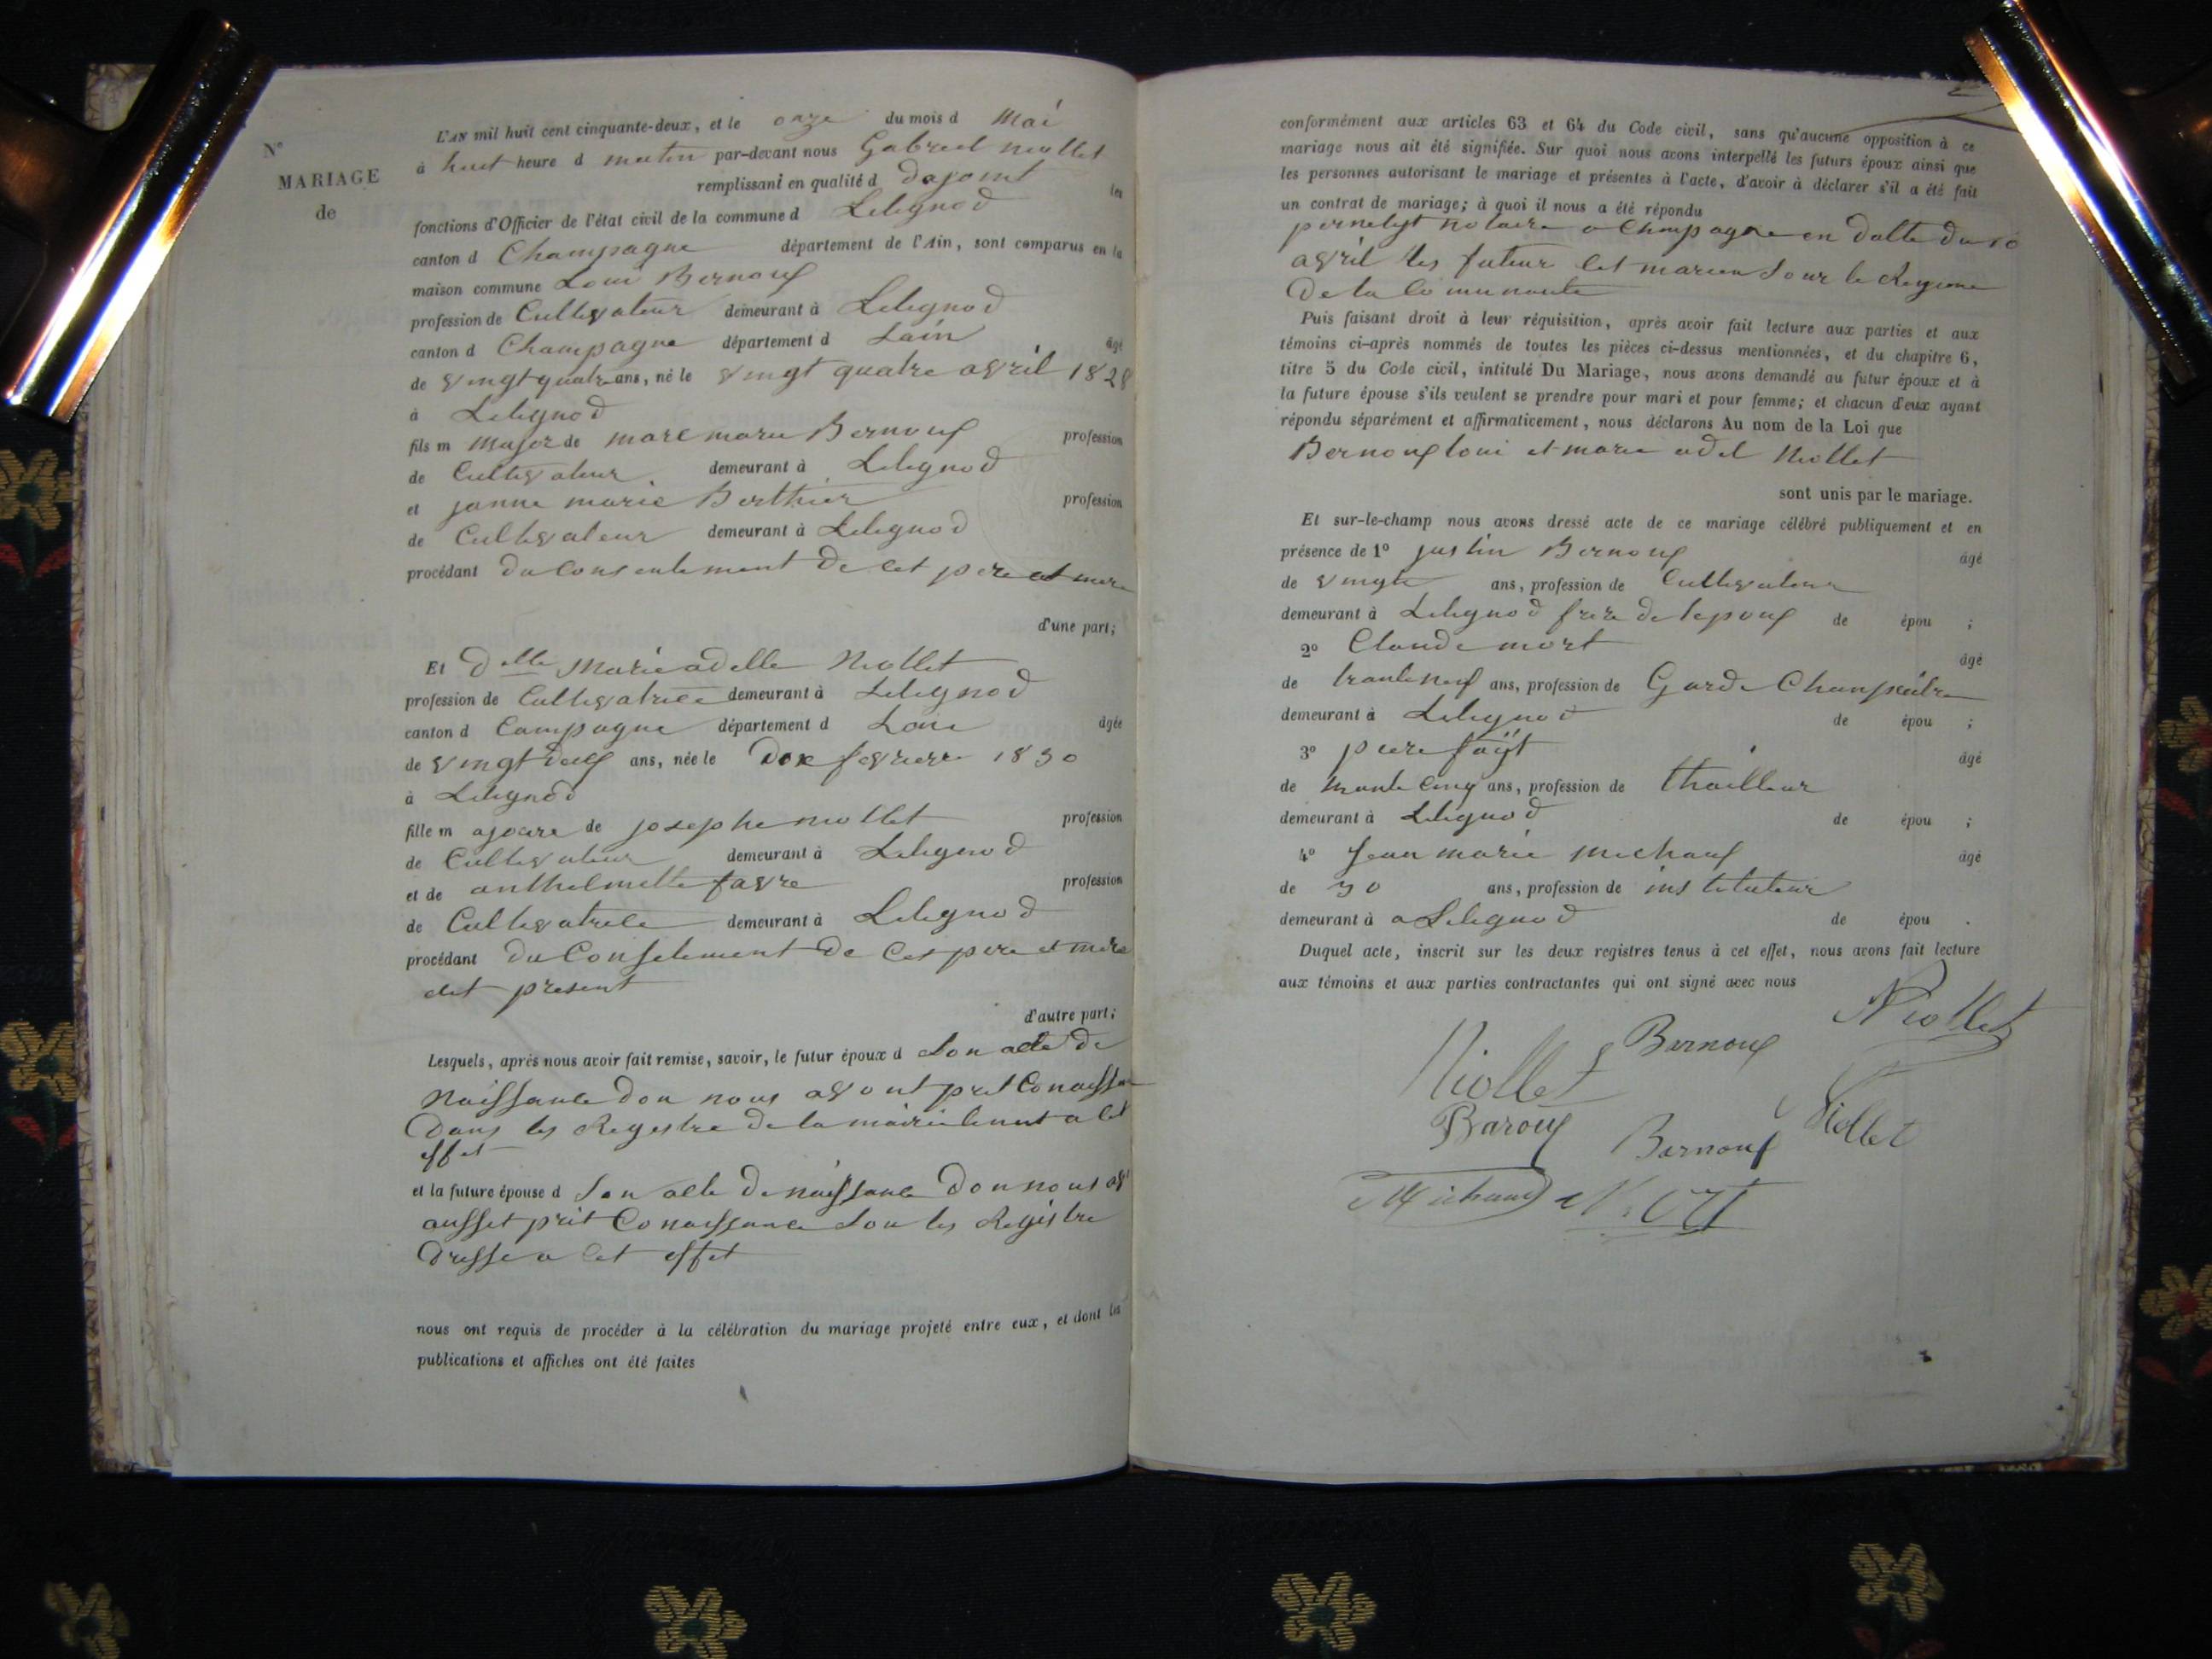 L'AN mil huit cent cinquante-deux, et le onze du mois d Mai
N°
à huit heure d matin par-devant nous Gabriel niollet
MARIAGE
remplissant en qualité d dajoint les
de
fonctions d'Officier de l'état civil de la commune d Lilignod
canton d Champagne département de l'Ain, sont comparus en la
maison commune Loui Bernouf
profession de Cultivateur demeurant à Lilignod
canton d Champagne département d Lain âgé
de vingt quatre ans, né le vingt quatre avril 1828
à Lilignod
fils m major de marc marie Bernouf profession
de Cultivateur demeurant à Lilignod
et janne marie Berthier profession
de Cultivateur demeurant à Lilignod
procédant du consentement de cet pere et mere
d'une part;
Et Delle Marie adelle Niollet
profession de Cultivatrice demeurant à Lilignod
canton d Campagne département d Lain âgée
de vingt deux ans, née le dix fevrierr 1830
à Lilignod
fille m ajeure de josephe niollet profession
de Cultivateur demeurant à Lilignod
et de anthelmette favre profession
de Cultivatrice demeurant à Lilignod
procédant du Conselement de Ces pere et mere
present
d'autre part;
Lesquels, après nous avoir fait remise, savoir, le futur époux d son acte de
naissance don nous avont prit Conaissance
Dans les Regestre de la mairie tenut a cet
effet
et la future épouse d son acte de naissance don nous av
ausset prit Conaissance sou les Registre
Dresse a cet effet
nous ont requis de procéder à la célébration du mariage projeté entre eux, et dont les
publications et affiches ont été faites
conformément aux articles 63 et 64 du Code civil, sans qu'aucune opposition à ce
mariage nous ait été signifiée. Sur quoi nous avons interpellé les futurs époux ainsi que
les personnes autorisant le mariage et présentes à l'acte, d'avoir à déclarer s'il a été fait
un contrat de mariage; à quoi il nous a été répondu
notaire a Champagne en datte du 10
avril les futeur set marien sour le Regime
De la Comunaute
Puis faisant droit à leur réquisition, après avoir fait lecture aux parties et aux
témoins ci-après nommés de toutes les pièces ci-dessus mentionnées, et du chapitre 6,
titre 5 du Code civil, intitulé Du Mariage, nous avons demandé au futur époux et à
la future épouse s'ils veulent se prendre pour mari et pour femme; et chacun d'eux ayant
répondu séparément et affirmativement, nous déclarons Au nom de la Loi que
Bernouf loui et marie adel Niollet
sont unis par le mariage.
Et sur-le-champ nous avons dressé acte de ce mariage célébré publiquement et en
présence de 1° justin Bernouf âgé
de vingt ans, profession de Cultivateur
demeurant à Lilignod frere de lepouf de épou ;
2° Claude mort âgé
de trante neuf ans, profession de Garde Champêtre
demeurant à Lilignod de épou ;
3° piere fayt âgé
de trante cinq ans, profession de thailleur
demeurant à Lilignod de épou ;
4° Jean marie michauf âgé
de 30 ans, profession de instituteur
demeurant à a Lilignod de épou .
Duquel acte, inscrit sur les deux registres tenus à cet effet, nous avons fait lecture
aux témoins et aux parties contractantes qui ont signé avec nous
Niollet Bernouf Niollet
Barouf Bernouf Niollet
Michaud Mort